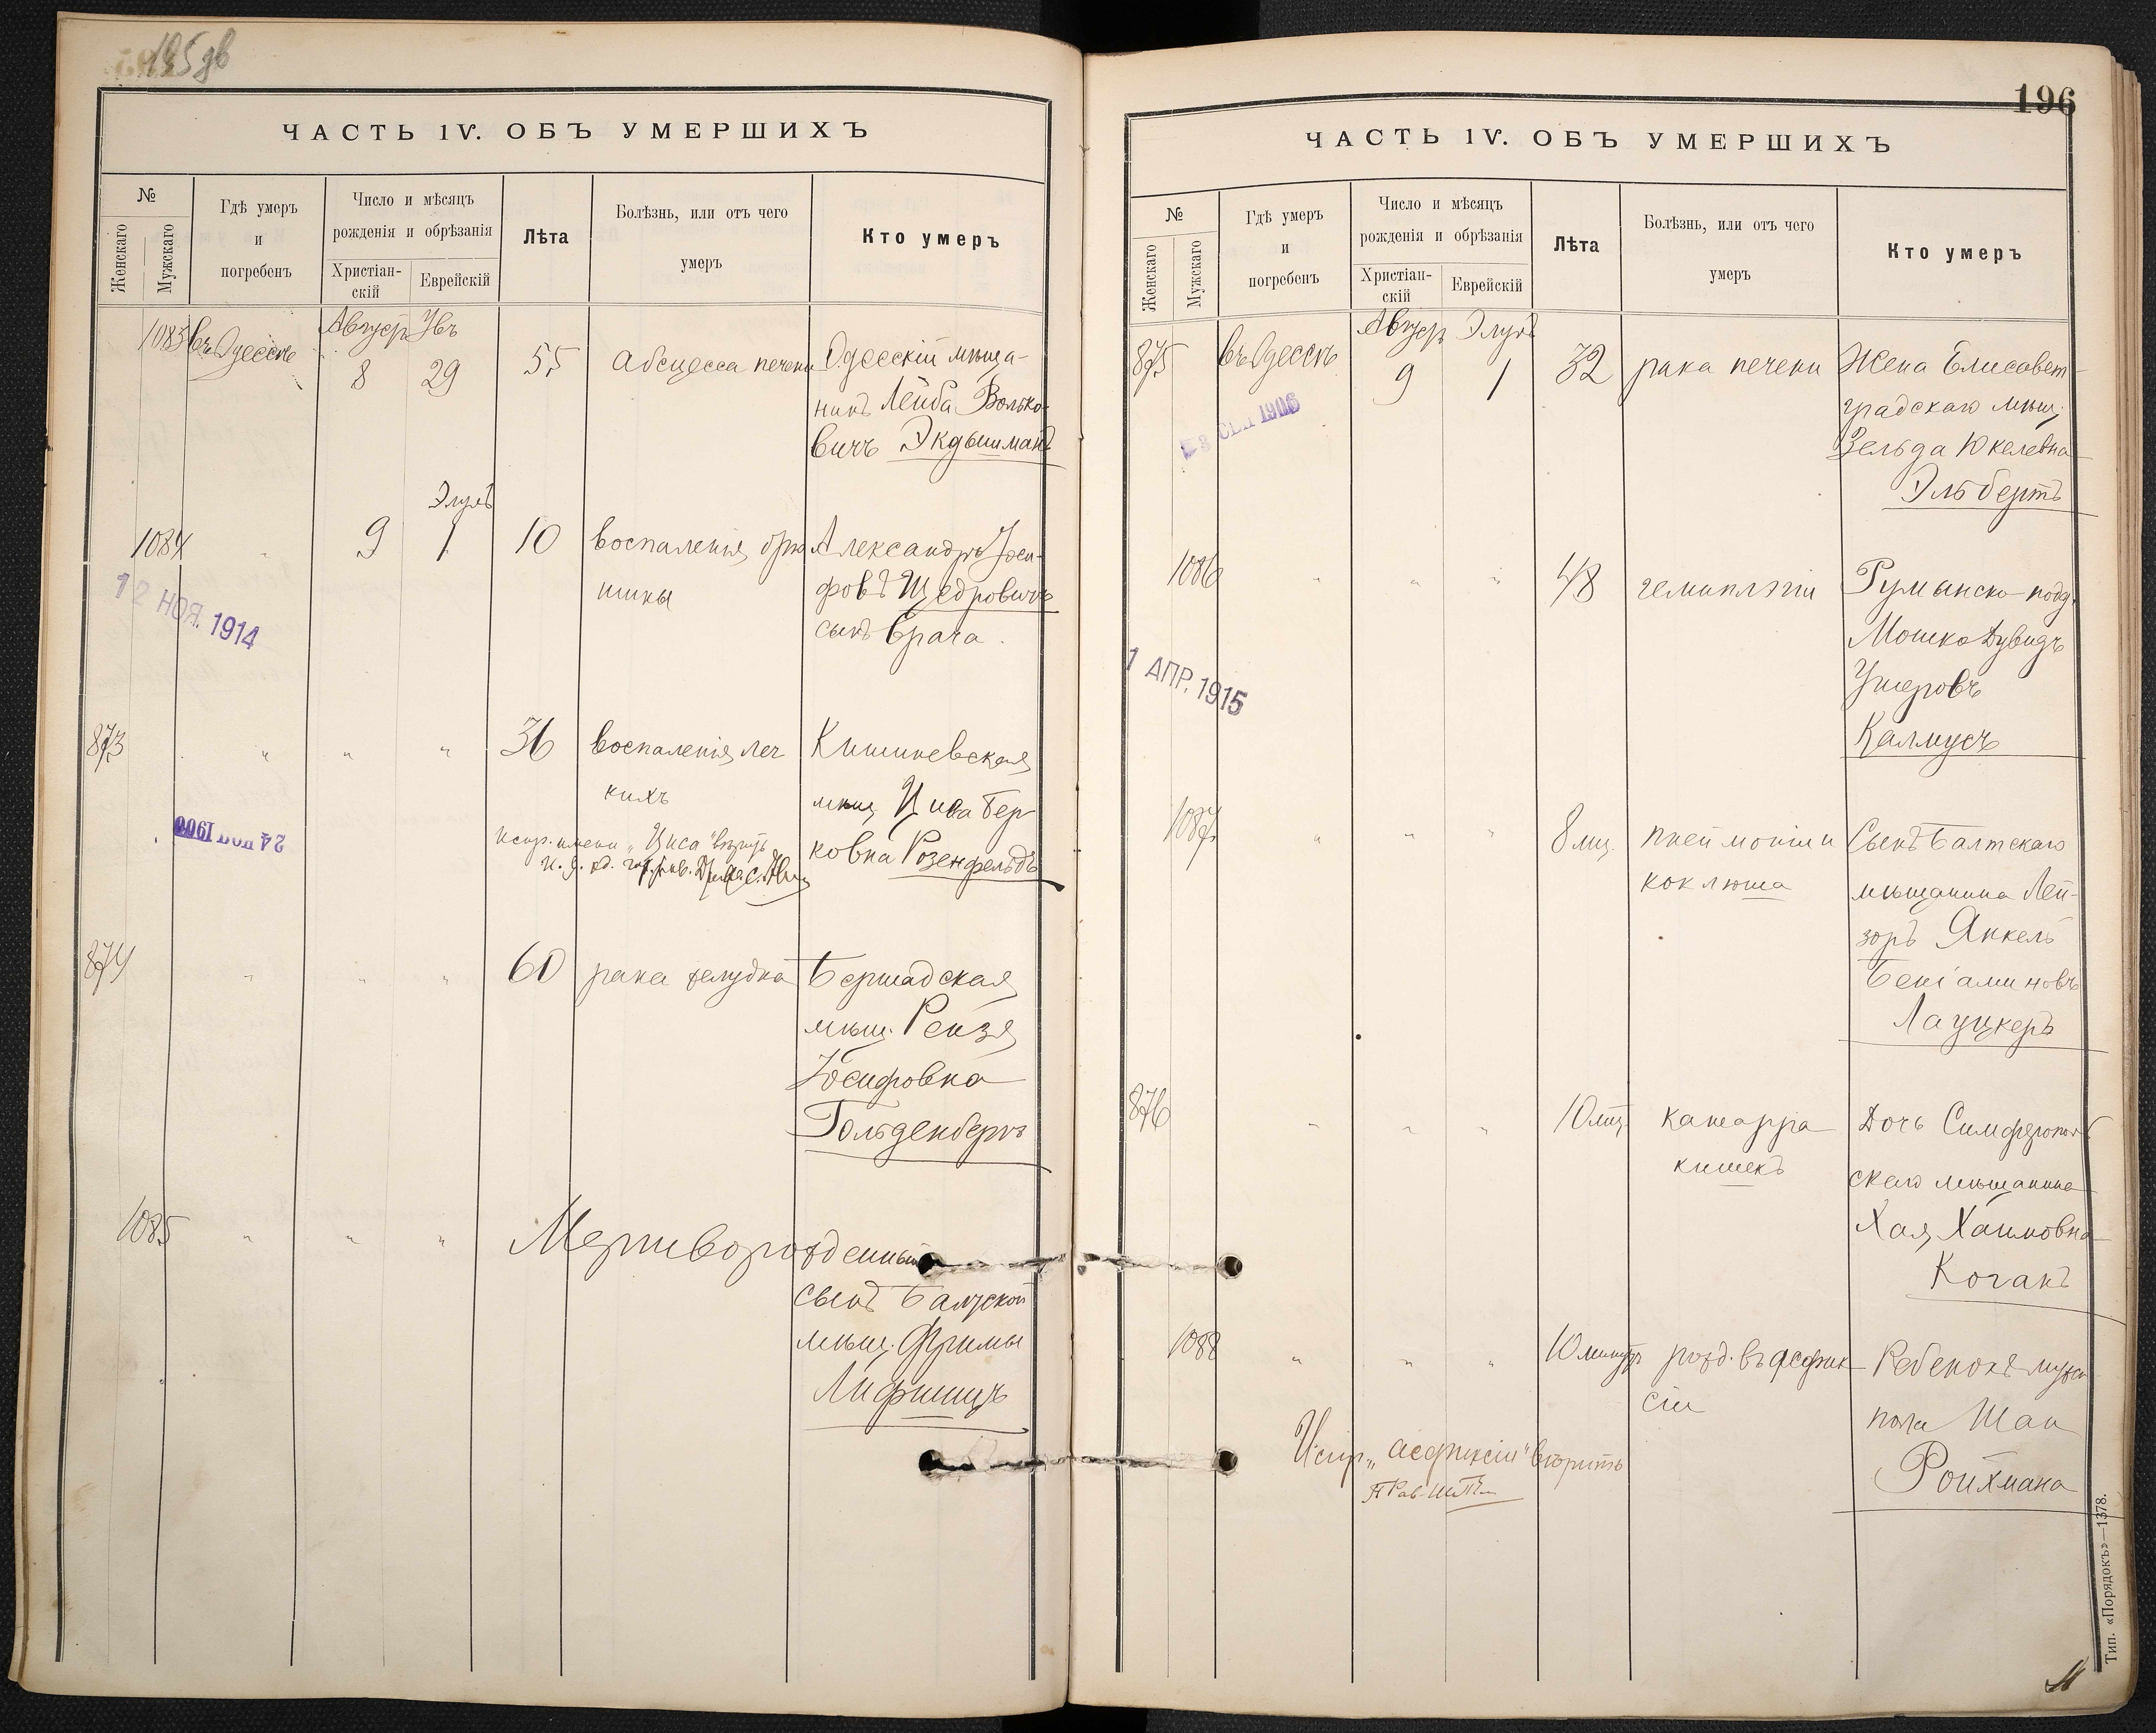 195 об
ЧАСТЬ IV. ОБЪ УМЕРШИХЪ
№
Женскаго
Мужскаго
Гдѣ умеръ
и
погребенъ
Число и мѣсяцъ
рожденія и обрѣзанія
Христіан-
скій
Еврейскій
Лѣта
Болѣзнь, или отъ чего
умеръ
Кто умеръ
1083 въ Одессѣ Август 8 Увъ 29 55 абсцесса печени Одесскій мѣща-
нинъ Лейба Волько-
вичъ Экдышманъ
1084 " 9 Элулъ 1 10 воспаленія брю Александръ Іоси-
шины фовъ Щедровичъ
сынъ врача
12 НОЯ. 1914
873 " " " 36 воспаленія лег Кишиневская
кихъ мѣщ Циса Бер
испр. имени „Циса" вѣрить ковна Розенфельдъ
24 НОЯ 1900
874 " " " 60 рака желудка Бершадская
мѣщ. Рейзя
Іосифовна
Гольденбергъ
1085 " " " Мертворожденный
сынъ Балтской
мѣщ. Фримы
Лифшицъ
196
ЧАСТЬ IV. ОБЪ УМЕРШИХЪ
№
Женскаго
Мужскаго
Гдѣ умеръ
и
погребенъ
Число и мѣсяцъ
рожденія и обрѣзанія
Христіан-
скій
Еврейскій
Лѣта
Болѣзнь, или отъ чего
умеръ
Кто умеръ
875 въ Одессѣ Август 9 Элулъ 1 32 рака печени Жена Елисавет-
градскаго мѣщ.
Зельда Юкелевна
Эльбертъ
СЕН 1906
1086 " " " 48 гемиплэгіи Румынско-подд.
Мошко Дувидъ
Ушеровъ
Калмусъ
1 АПР. 1915
1087 " " " 8 мц. пнеймоніи и Сынъ Балтскаго
коклюша мѣщанина Лей-
зоръ Янкель
Беніаминовъ
Лауцкеръ
876 " " " 10 мц. катарра Дочь Симферополь
кишекъ скаго мѣщанина
Хая Хаимовна
Коганъ
1088 " " " 10 минутъ рожд. въ асфик- Ребенокъ мужск
сіи пола Шаи
Испр. „асфиксіи" вѣрить Ройхмана
Тип. «Порядокъ»—1378.